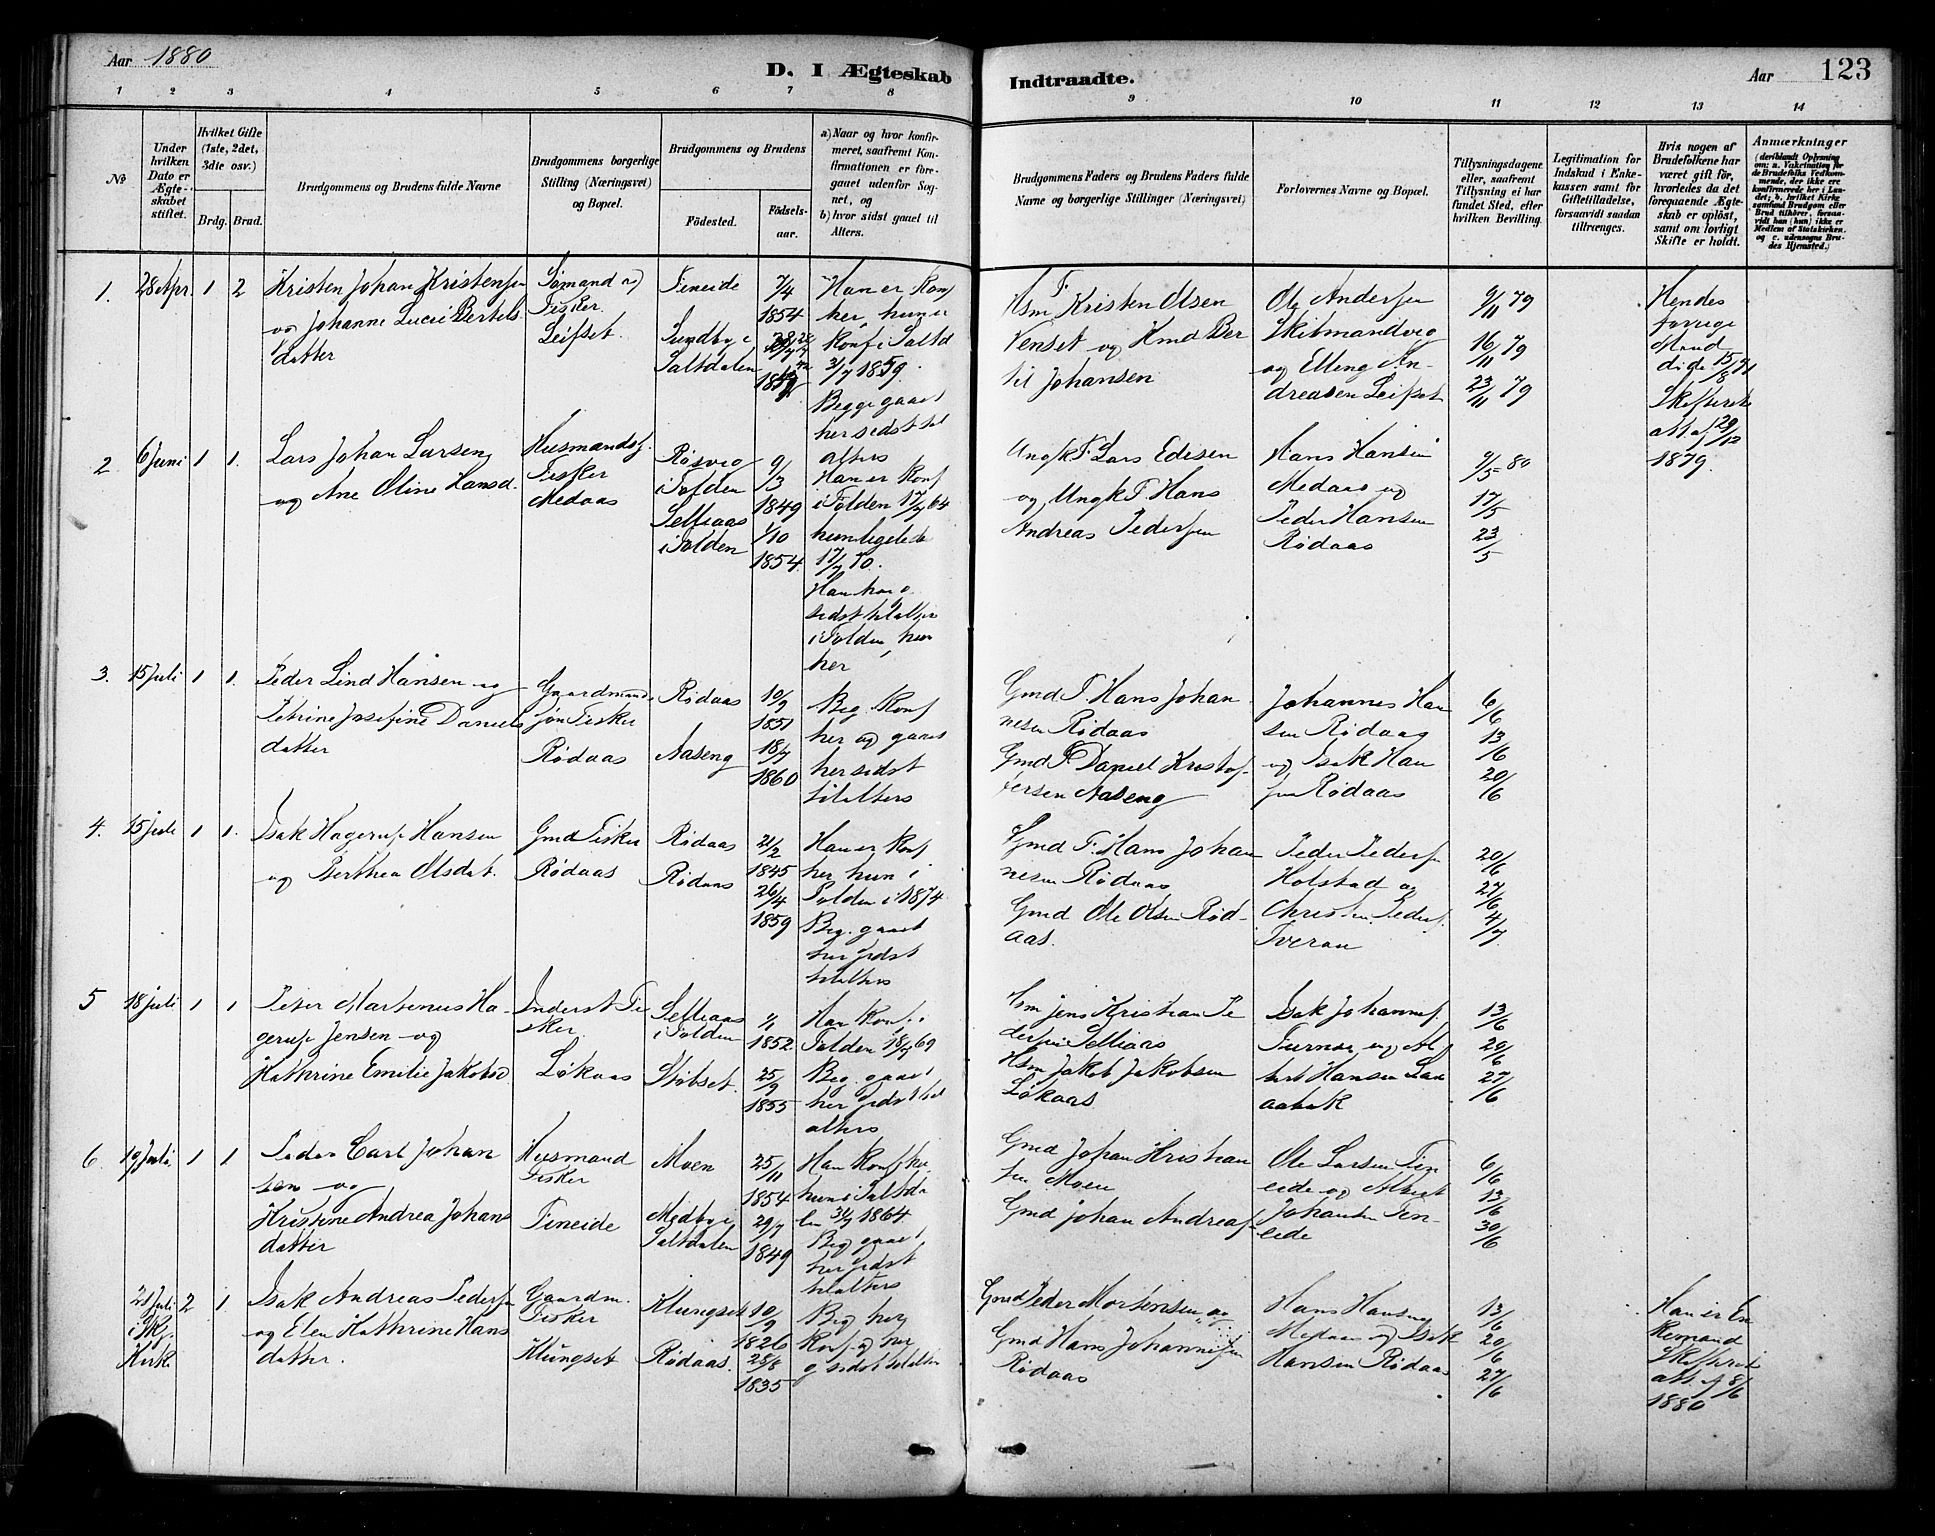 Aar 1880
D. I Ægteskab
Indtraadte.
Aar
123
1 2 3 4 5 6 7 8 9 10 11 12 13 14
No
Under hvilken Dato er Ægteskabet stiftet.
Hvilket Gifte (1ste, 2det, 3die osv.)
Brdg. Brud.
Brudgommens og Brudens fulde Navne
Brudgommens borgerlige Stilling (Næringsvei) og Bopæl.
Brudgommens og Brudens
Födested.
Födselsaar.
a) Naar og hvor konfirmeret, saafremt Konfirmationen er foregaaet udenfor Sognet, og
b) hvor sidst gaaet til Alters.
Brudgommens Faders og Brudens Faders fulde Navne og borgerlige Stillinger (Næringsvei)
Forlovernes Navne og Bopæl.
Tillysningsdagene eller, saafremt Tillysning ei har fundet Sted, efter hvilken Bevilling.
Legitimation for Indskud i Enkekassen samt for Giftetilladelse, forsaavidt saadan tiltrænges.
Hvis nogen af Brudefolkene har været gift för, hvorledes da det foregaaende Ægteskab er oplöst, samt om lovligt Skifte er holdt.
Anmærkninger
(deriblandt Oplysning om: a. Vakcination for de Brudefolks Vedkommende, der ikke ere konfirmerede her i Landet; b. hvilket Kirkesamfund Brudgom eller Brud tilhörer, forsaavidt han (hun) ikke er Medlem af Statskirken, og c. udensogns Brudes Hjemsted.)
1. 28 Apr. 1 2
Kristen Johan Kristensen
og Johanne Lucie Bertels
datter
Sömand og
Fisker
Leifset.
Fineide
Sundby i
Saltdalen
7/4
1854
Han er Konf
her, hun er
Konf i Saltd
3/7 1859.
Begge gaaet
her sidst til
alters
Hsm F. Kristen Olsen
Venset og Hmd Ber
til Johansen
Ole Andersen
Skibmandvig
og Elling An-
dreasen Leifset
9/11 79
16/11 79
23/11 79
Hendes
forrige
Mand
döde 15/8 71
Skifteret
att af 29/12
1879.
2. 6 Juni 1 1.
Lars Johan Larsen
og Ane Oline Hansd.
Husmandsf.
Fisker
Medaas
Røsvig
i Folden
Selliaas
i Folden
9/3
1849
1/10
1854.
Han er Konf
i Folden 17/7 64
hun ligeled
17/7 70.
Han har g
sidst til alters
i Folden, hun
her
Ungk F. Lars Edisen
og Ungk F. Hans
Andreas Pedersen
Hans Hansen
Medaas og
Peder Hansen
Rødaas
9/5 80
17/5
23/5
3. 15 Juli 1 1.
Peder Lind Hansen og
Petrine Josefine Daniels
datter
Gaardmands
søn Fisker
Rødaas
Rødaas
Aaseng
10/9
1851
18/7
1860
Beg. Konf
her og gaaet
her sidst
til alters
Gmd F. Hans Johan
nesen Rødaas
Gmd F. Daniel Kristof
fersen Aaseng
Johannes Han
sen Rødaas
og Isak Han
sen Rødaas
6/6
13/6
20/6
4. 15 Juli 1 1.
Isak Hagerup Hansen
og Berthea Olsdat.
Gmd Fisker
Rødaas
Rødaas
Rødaas
21/2
1845
26/4
1859
Han er Konf
her hun i
Folden i 1874
Beg. gaaet
her sidst
til alters
Gmd F. Hans Johan
nesen Rødaas
Gmd Ole Olsen Rød-
aas.
Peder Peders
Holstad og
Christen Peders.
Tveraa
20/6
27/6
4/7
5 18 Juli 1 1
Peter Martenus Ha-
gerup Jensen og
Kathrine Emilie Jakobsd
Inderst Fi
sker
Løkaas
Selliaas
i Folden
Støbset.
1/1
1852.
25/9
1855
Han Konf. i
Folden 18/7 69
Beg. gaaet
her sidst til
alters
Hsm Jens Kristian Pe
dersen Selliaas
Hsm Jakob Jakobsen
Løkaas
Isak Johannes.
Furnes og Al
bert Hansen
13/6
20/6
27/6
6. 19 Juli, 1 1
Peder Carl Johan
sen og
Kristine Andrea Johans
datter
Husmand
Fisker
Fineide
Moen
Medby i
Saltdalen
25/11
1854
29/7
1849
Han Konf her
hun i Saltda
len 31/7 1864
Beg gaaet
her sidst
til alters
Gmd Johan Kristian
sen Moen
Gmd Johan Andreas.
Ole Larsen Fin
eide og Albert
Johansen Fin-
eide
6/6
13/6
30/6
21 Juli
i Skj.
Kirke
2 1.
Isak Andreas Pedersen
og Elen Kathrine Hans
datter.
Gaardm.
Fisker
Klungset
Klungset
Rødaas.
10/9
1826
28/8
1835
Beg her
Konf og her
g sidst til alters
Gmd Peder Mortensen og
Gmd Hans Johannesen
Rødaas
Hans Hansen
Medaas og Isak
Hansen Rødaas
13/6
20/6
27/6
Han er En
kemand
Skifteret
att. af 8/6
1880